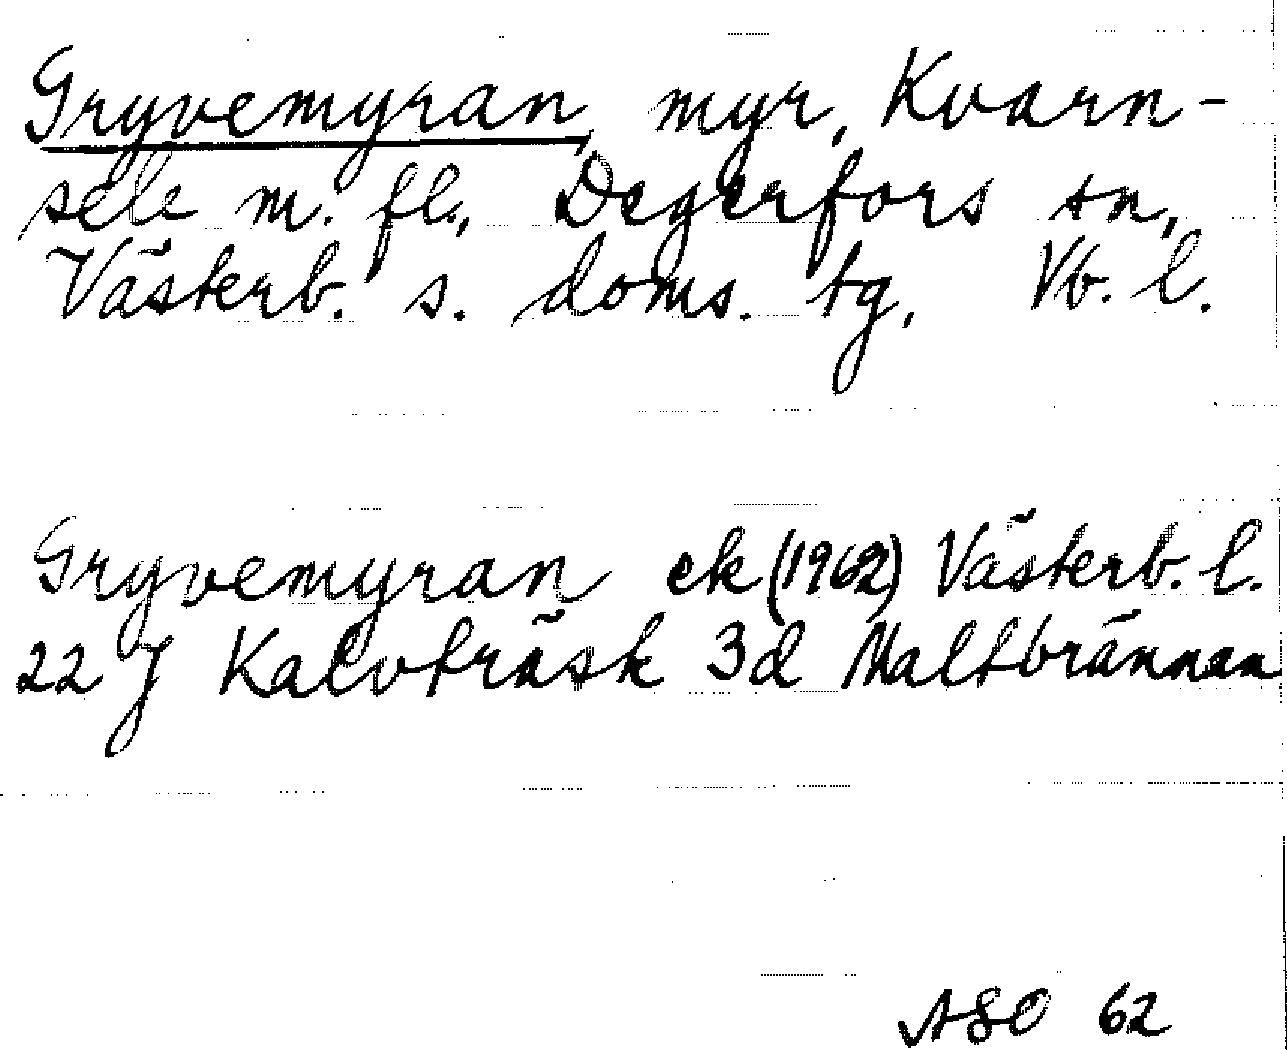 Gryvemyran, myr, Kvarn-
sele m. fl., Degerfors sn,
Västerb. s. doms. tg, Vb. l.
Gryvemyran ek (1962) Västerb. l.
22 J Kalvträsk 3d Maltbrännan
ASO 62